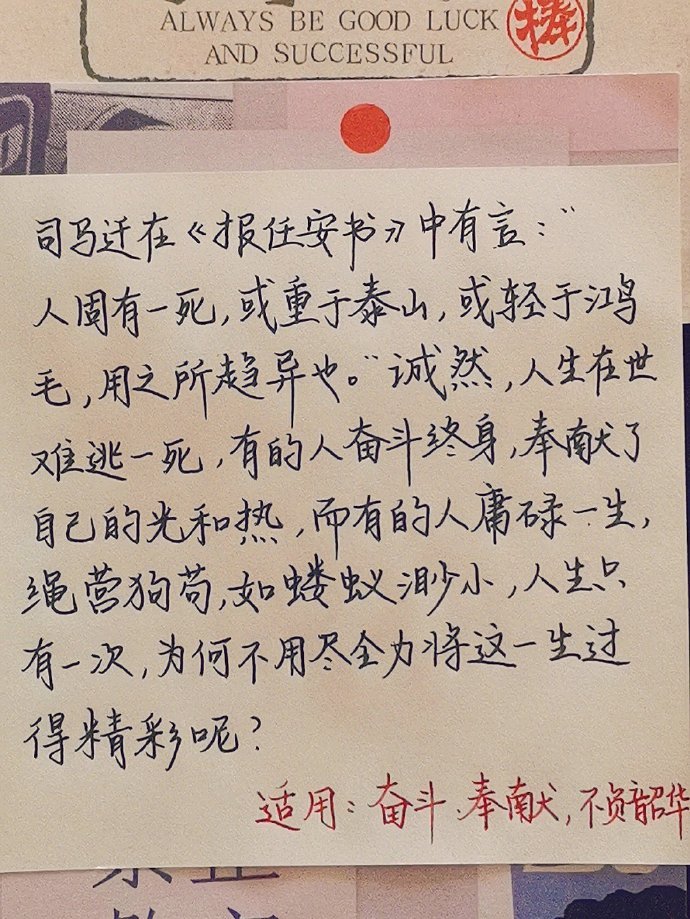 ALWAYS BE GOOD LUCK
AND SUCCESSFUL
司马迁在《报任安书》中有言：“
人固有一死，或重于泰山，或轻于鸿
毛，用之所趋异也。“诚然，人生在世
难逃一死，有的人奋斗终身，奉献了
自己的光和热，而有的人庸碌一生，
绳营狗苟，如蝼蚁渺小，人生只
有一次，为何不用尽全力将这一生过
得精彩呢？
适用：奋斗、奉献，不负韶华